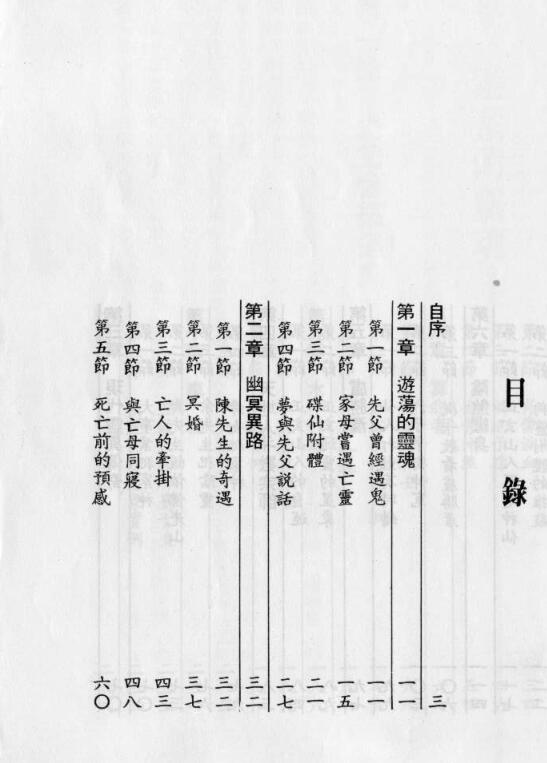 目錄
自序 三
第一章 遊蕩的靈魂 一一
第一節 先父曾經遇鬼 一一
第二節 家母嘗遇亡靈 一五
第三節 碟仙附體 二一
第四節 夢與先父説話 二七
第二章 幽冥異路 三二
第一節 陳先生的奇遇 三二
第二節 冥婚 三七
第三節 亡人的牽掛 四三
第四節 與亡母同寢 四八
第五節 死亡前的預感 六〇